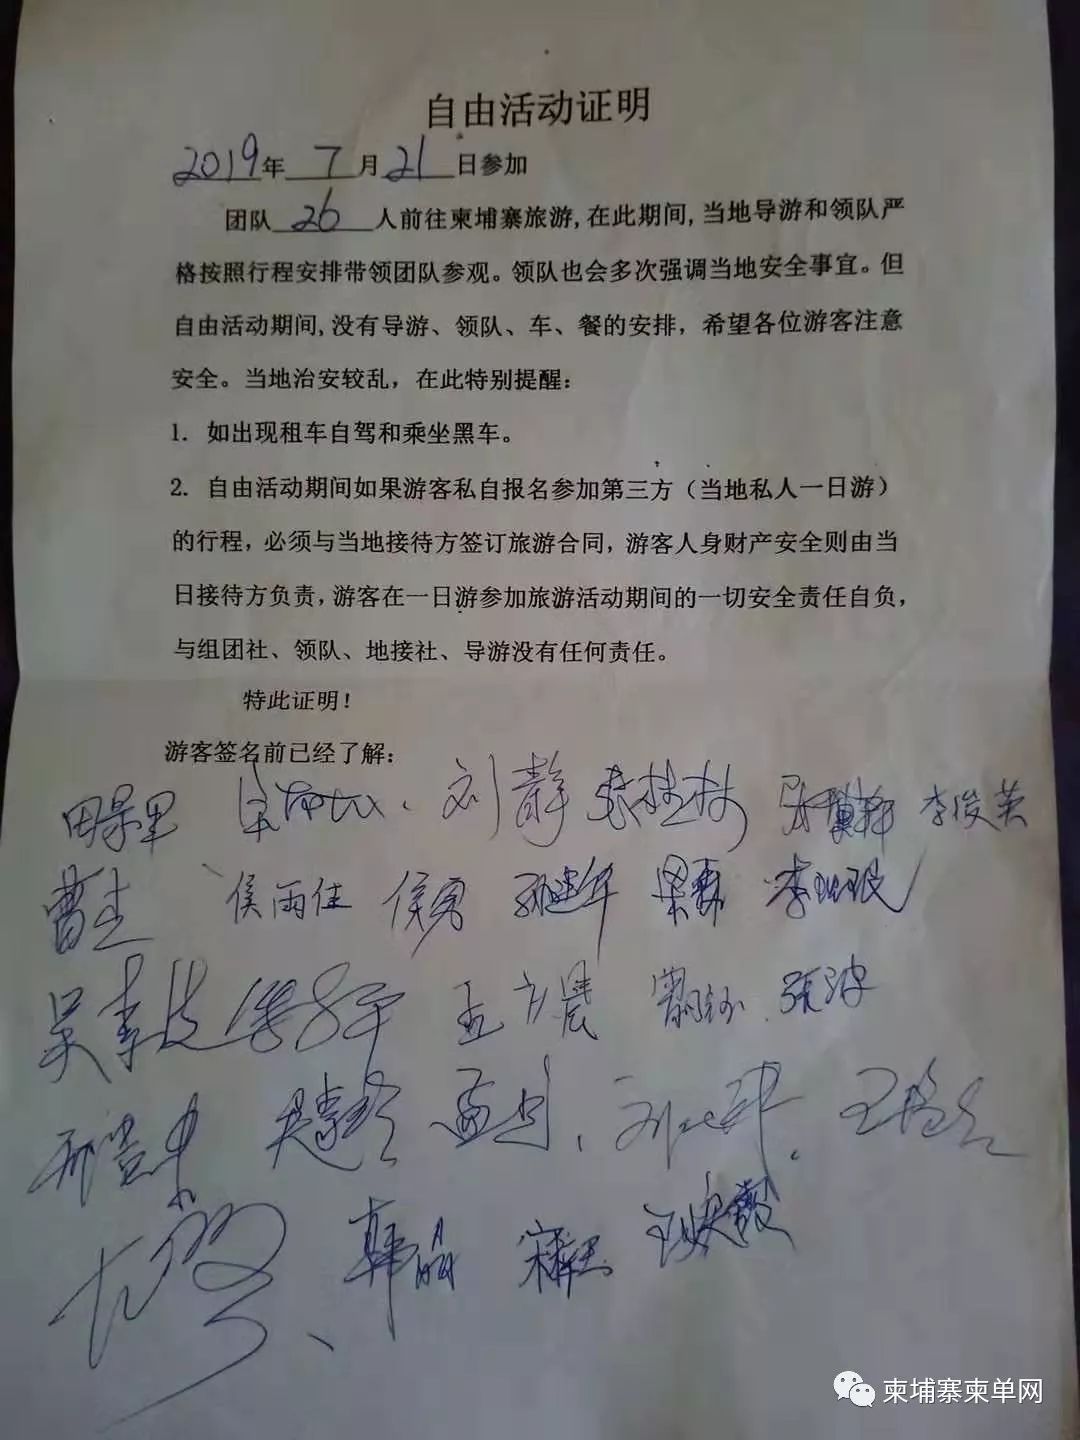 自由活动证明
2019年 7 月 21 日参加
团队 26 人前往柬埔寨旅游,在此期间,当地导游和领队严
格按照行程安排带领团队参观。领队也会多次强调当地安全事宜。但
自由活动期间,没有导游、领队、车、餐的安排，希望各位游客注意
安全。当地治安较乱，在此特别提�：
1. 如出现租车自驾和乘坐黑车。
2. 自由活动期间如果游客私自报名参加第三方（当地私人一日游）
的行程，必须与当地接待方签订旅游合同，游客人身财产安全则由当
日接待方负责，游客在一日游参加旅游活动期间的一切安全责任自负，
与组团社、领队、地接社、导游没有任何责任。
特此证明！
游客签名前已经了解：
刘静 张桂林 李俊英
侯雨佳 侯勇
张波
韩晶
柬埔寨柬单网